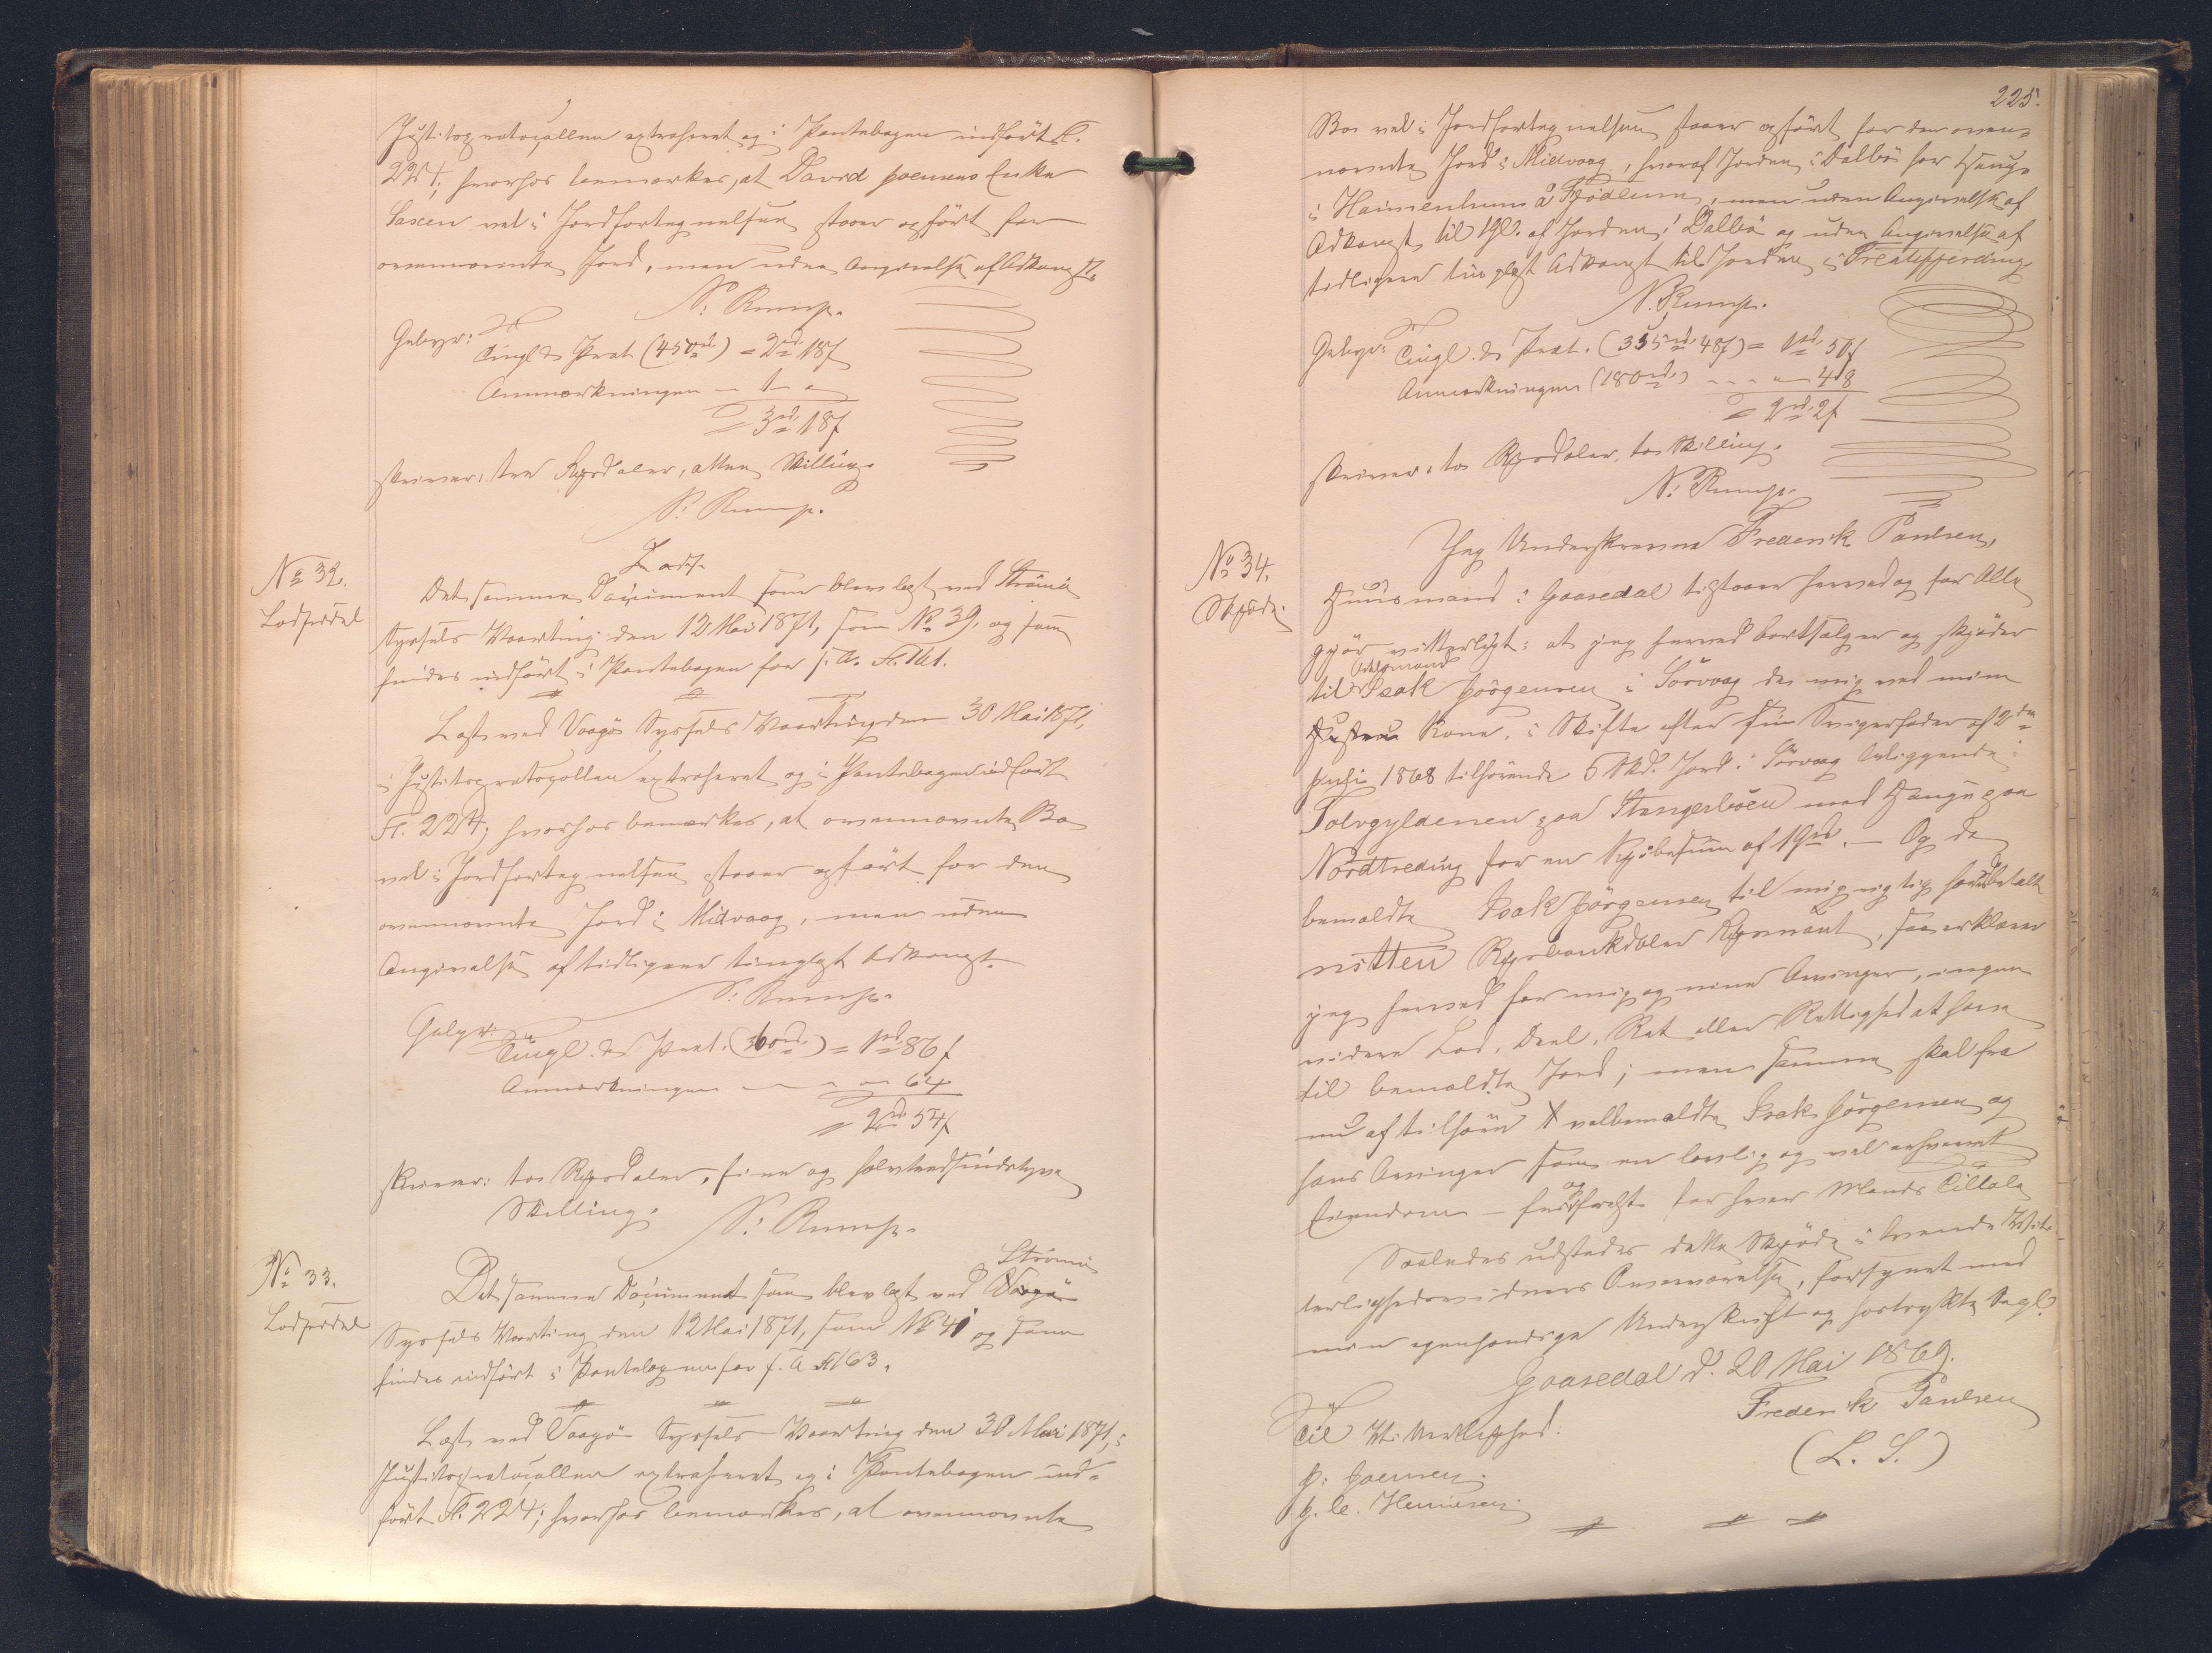 Justitsprotocollen extraheret og i Pantebogen indført Fl.
224; hvorhos bemærkes, at David Joensens Enke
Saxen vel i Jordfortegnelsen staaer opført for
ovennævnte Jord, men uden Angivelse af Adkomst.
N: Rump.
Gebyr:
Tingl. & Prot. (450rd.) = 2rd. 18ʃ
Anmærkningen — 1 - "
= 3rd. 18ʃ
skriver: tre Rigsdaler, atten Skilling.
N: Rump.
No 32.
Lodseddel
Det samme Document som blev læst ved Strømø
Syssels Vaarting den 12 Mai 1871, som No 39, og som
findes indført i Pantebogen for s. A. Fl. 161.
Læst ved Vaagø Syssels Vaarting den 30 Mai 1871,
i Justitsprotocollen extraheret og i Pantebogen indført
Fl. 224; hvorhos bemærkes, at ovennævnte Bo
vel i Jordfortegnelsen staaer opført for den
ovennævnte Jord i Midvaag, men uden
Angivelse af tidligere tinglæst Adkomst.
N: Rump.
Gebyr:
Tingl. & Prot. (360rd.) = 1rd. 86ʃ
Anmærkningen — — " 64
= 2rd. 54ʃ
skriver: to Rigsdaler, fire og halvtredsindstyve
Skilling.
N: Rump.
No 33.
Lodseddel
Strømø
Det samme Document som blev læst ved Vaagø
Syssels Vaarting den 12 Mai 1871, som No 41 og som
findes indført i Pantebogen for s. A Fl 163.
Læst ved Vaagø Syssels Vaarting den 30 Mai 1871, i
Justitsprotocollen extraheret og i Pantebogen ind-
ført Fl. 224; hvorhos bemærkes, at ovennævnte
225.
Bo vel i Jordfortegnelsen staaer opført for den oven-
nævnte Jord i Midvaag, hvoraf Jorden i Dalbø har Hauge
i Heimenhuus a Fjødlum, men uden Angivelse af
Adkomst til 1 Gl. af Jorden i Dalbø og uden Angivelse af
tidligere tinglæst Adkomst til Jorden i
N. Rump.
Gebyr: Tingl. & Prot. (335rd. 48ʃ) = 1rd. 50ʃ
Anmærkningen (180rd.) - - - " — 48
= 2rd. 2ʃ
skriver: to Rigsdaler, to Skilling.
N: Rump.
No 34.
Skjøde.
Jeg Underskrevne Frederik Paulsen,
Huusmand i Gaasedal tilstaaer herved og for Alle
gjør vitterligt: at jeg herved bortsælger og skjøder
til Isak Jørgensen i Sørvaag den mig ved min
Hustru Kone, i Skifte efter sin Svigerfader af 2den
Juli 1868 tilhørende 5 Skd. Jord i Sørvaag beliggende i
Tolvgyldenen paa Stengerbøen med Hauge paa
Nordtreding for en Kjøbesum af 19rd. — Og da
bemeldte Isak Jørgensen til mig rigtig har betalt
nitten Rigsbankdaler Rigsmønt, saa erklærer
jeg herved for mig og mine Arvinger, ingen
videre Lod, Deel, Ret eller Rettighed at have
til bemeldte Jord; men samme skal fra
nu af tilhøre velbemeldte Isak Jørgensen og
hans Arvinger som en lovlig og vel erhvervet
Eiendom — for hver Mands Tiltale
Saaledes udstedes dette Skjøde i tvende Vit-
terlighedsvidners Overværelse, forsynet med
min egenhændige Underskrift og hostrykte Segl.
Gaasedal d. 20 Mai 1869.
Frederik Paulsen
(L. S.)
Til Vitterlighed:
J: Joensen.